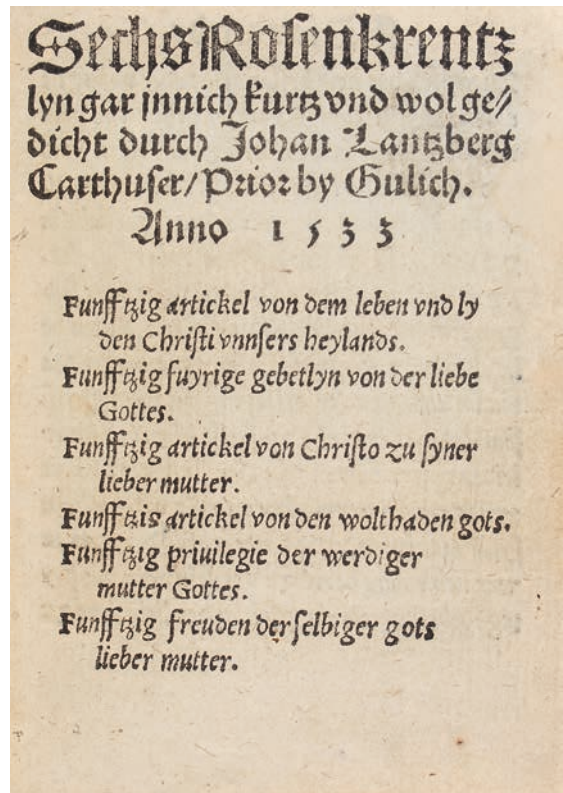 Sechs Rosenkrentz
lyn gar jnnich kurtz vnd wol ge/
dicht durch Johan Lantzberg
Carthuser/ Prior by Gulich.
Anno 1533
Funfftzig artickel von dem leben vnd ly
den Christi vnnsers heylands.
Funfftzig fuyrige gebetlyn von der liebe
Gottes.
Funfftzig artickel von Christo zu syner
lieber mutter.
Funfftzis artickel von den wolthaden gots.
Funfftzig priuilegie der werdiger
mutter Gottes.
Funfftzig freuden der selbiger gots
lieber mutter.